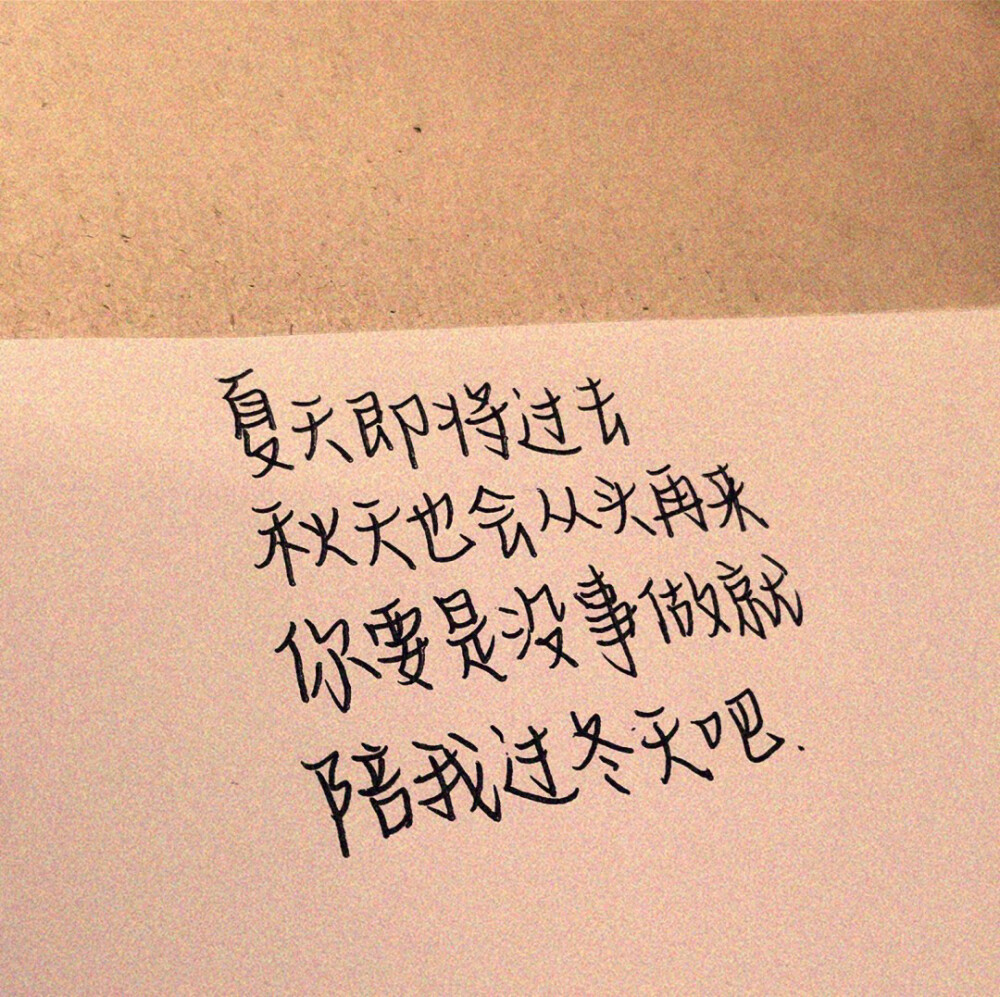 夏天即将过去
秋天也会从头再来
你要是没事做就
陪我过冬天吧.